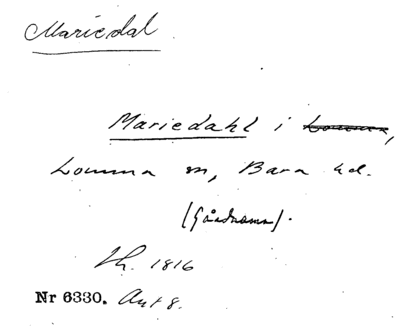 Mariedal
Mariedahl i Lomma,
Lomma sn, Bara hd.
(Gårdnamn).
Jh. 1816
Nr 6330. Ant 8.